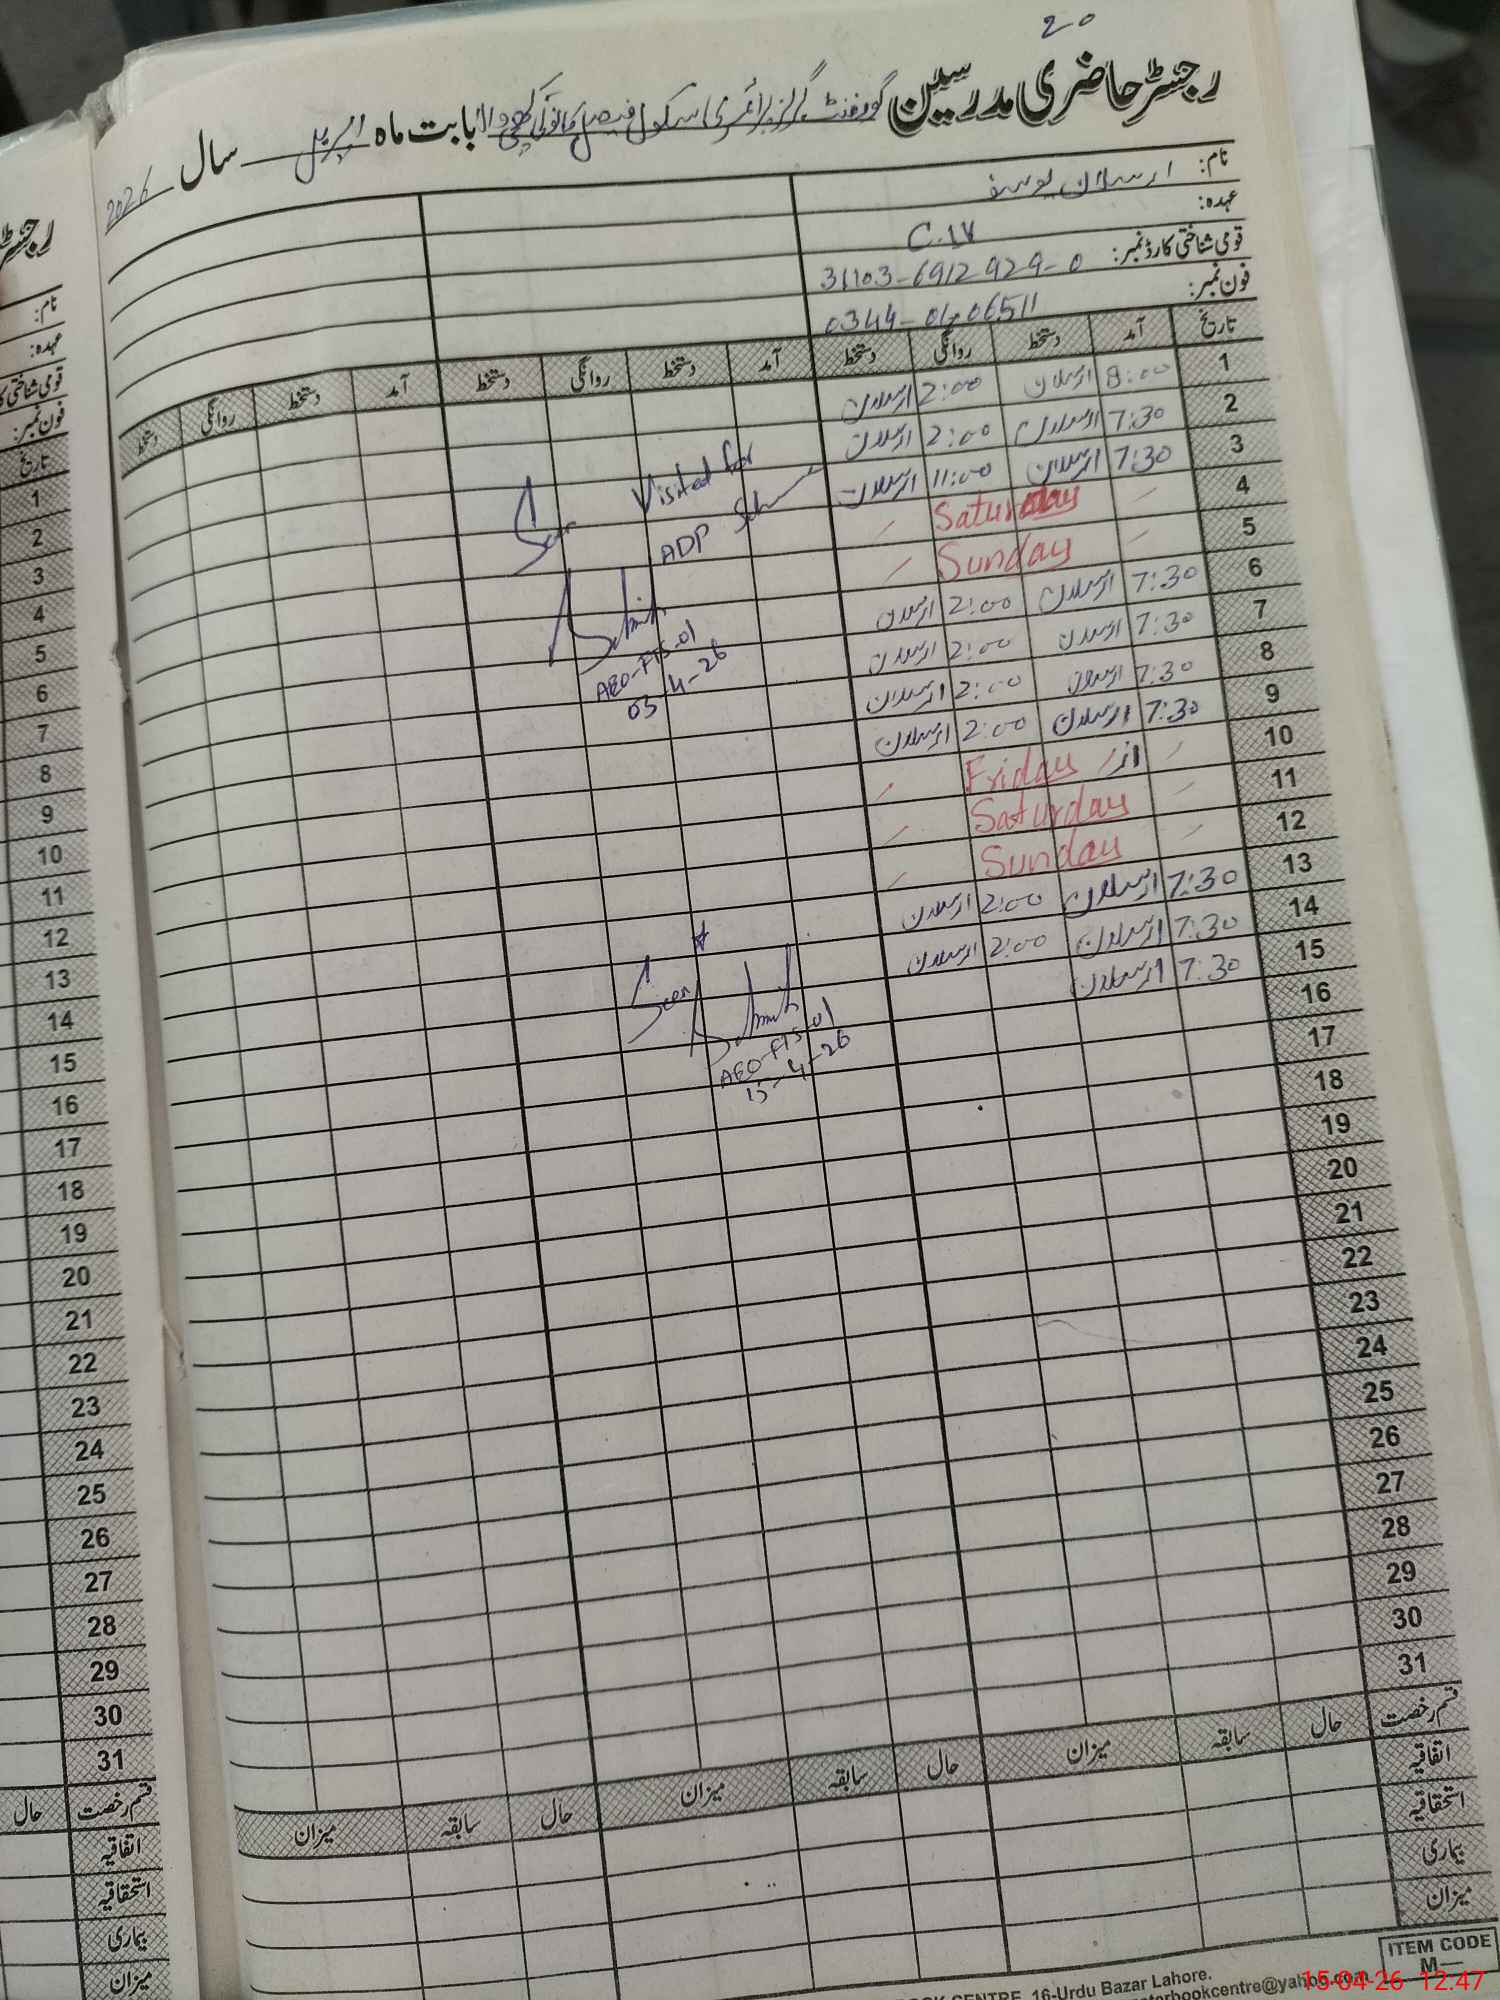 20
رجسٹر حاضری مدرسین گورنمنٹ گرلز پرائمری سکول فیصل کالونی کھچی والا بابت ماہ اپریل سال 2026
نام: ارسلان یوسف
عہدہ: C.IV
قومی شناختی کارڈ نمبر: 31103-6912929-0
فون نمبر: 0344-0406511
تاریخ آمد دستخط روانگی دستخط آمد دستخط روانگی دستخط آمد دستخط روانگی دستخط
1 8:00 ارسلان 2:00 ارسلان
2 7:30 ارسلان 2:00 ارسلان
3 7:30 ارسلان 11:00 ارسلان
4 Saturday
5 Sunday
6 7:30 ارسلان 2:00 ارسلان
7 7:30 ارسلان 2:00 ارسلان
8 7:30 ارسلان 2:00 ارسلان
9 7:30 ارسلان 2:00 ارسلان
10 ار Friday
11 Saturday
12 Sunday
13 7:30 ارسلان 2:00 ارسلان
14 7:30 ارسلان 2:00 ارسلان
15 7:30 ارسلان
16
17
18
19
20
21
22
23
24
25
26
27
28
29
30
31
Seen Visited for
ADP
AEO-FTS-01
03-4-26
Seen
AEO-FTS-01
15-4-26
قسم رخصت حال سابقہ میزان حال سابقہ میزان حال سابقہ میزان
اتفاقیہ
استحقاقیہ
بیماری
میزان
ITEM CODE
M—
BOOK CENTRE, 16-Urdu Bazar Lahore.
bookcentre@yahoo.com
15-04-26 12:47
رجسٹر
نام:
عہدہ:
قومی شناختی
فون نمبر:
تاریخ
1
2
3
4
5
6
7
8
9
10
11
12
13
14
15
16
17
18
19
20
21
22
23
24
25
26
27
28
29
30
31
قسم رخصت حال
اتفاقیہ
استحقاقیہ
بیماری
میزان